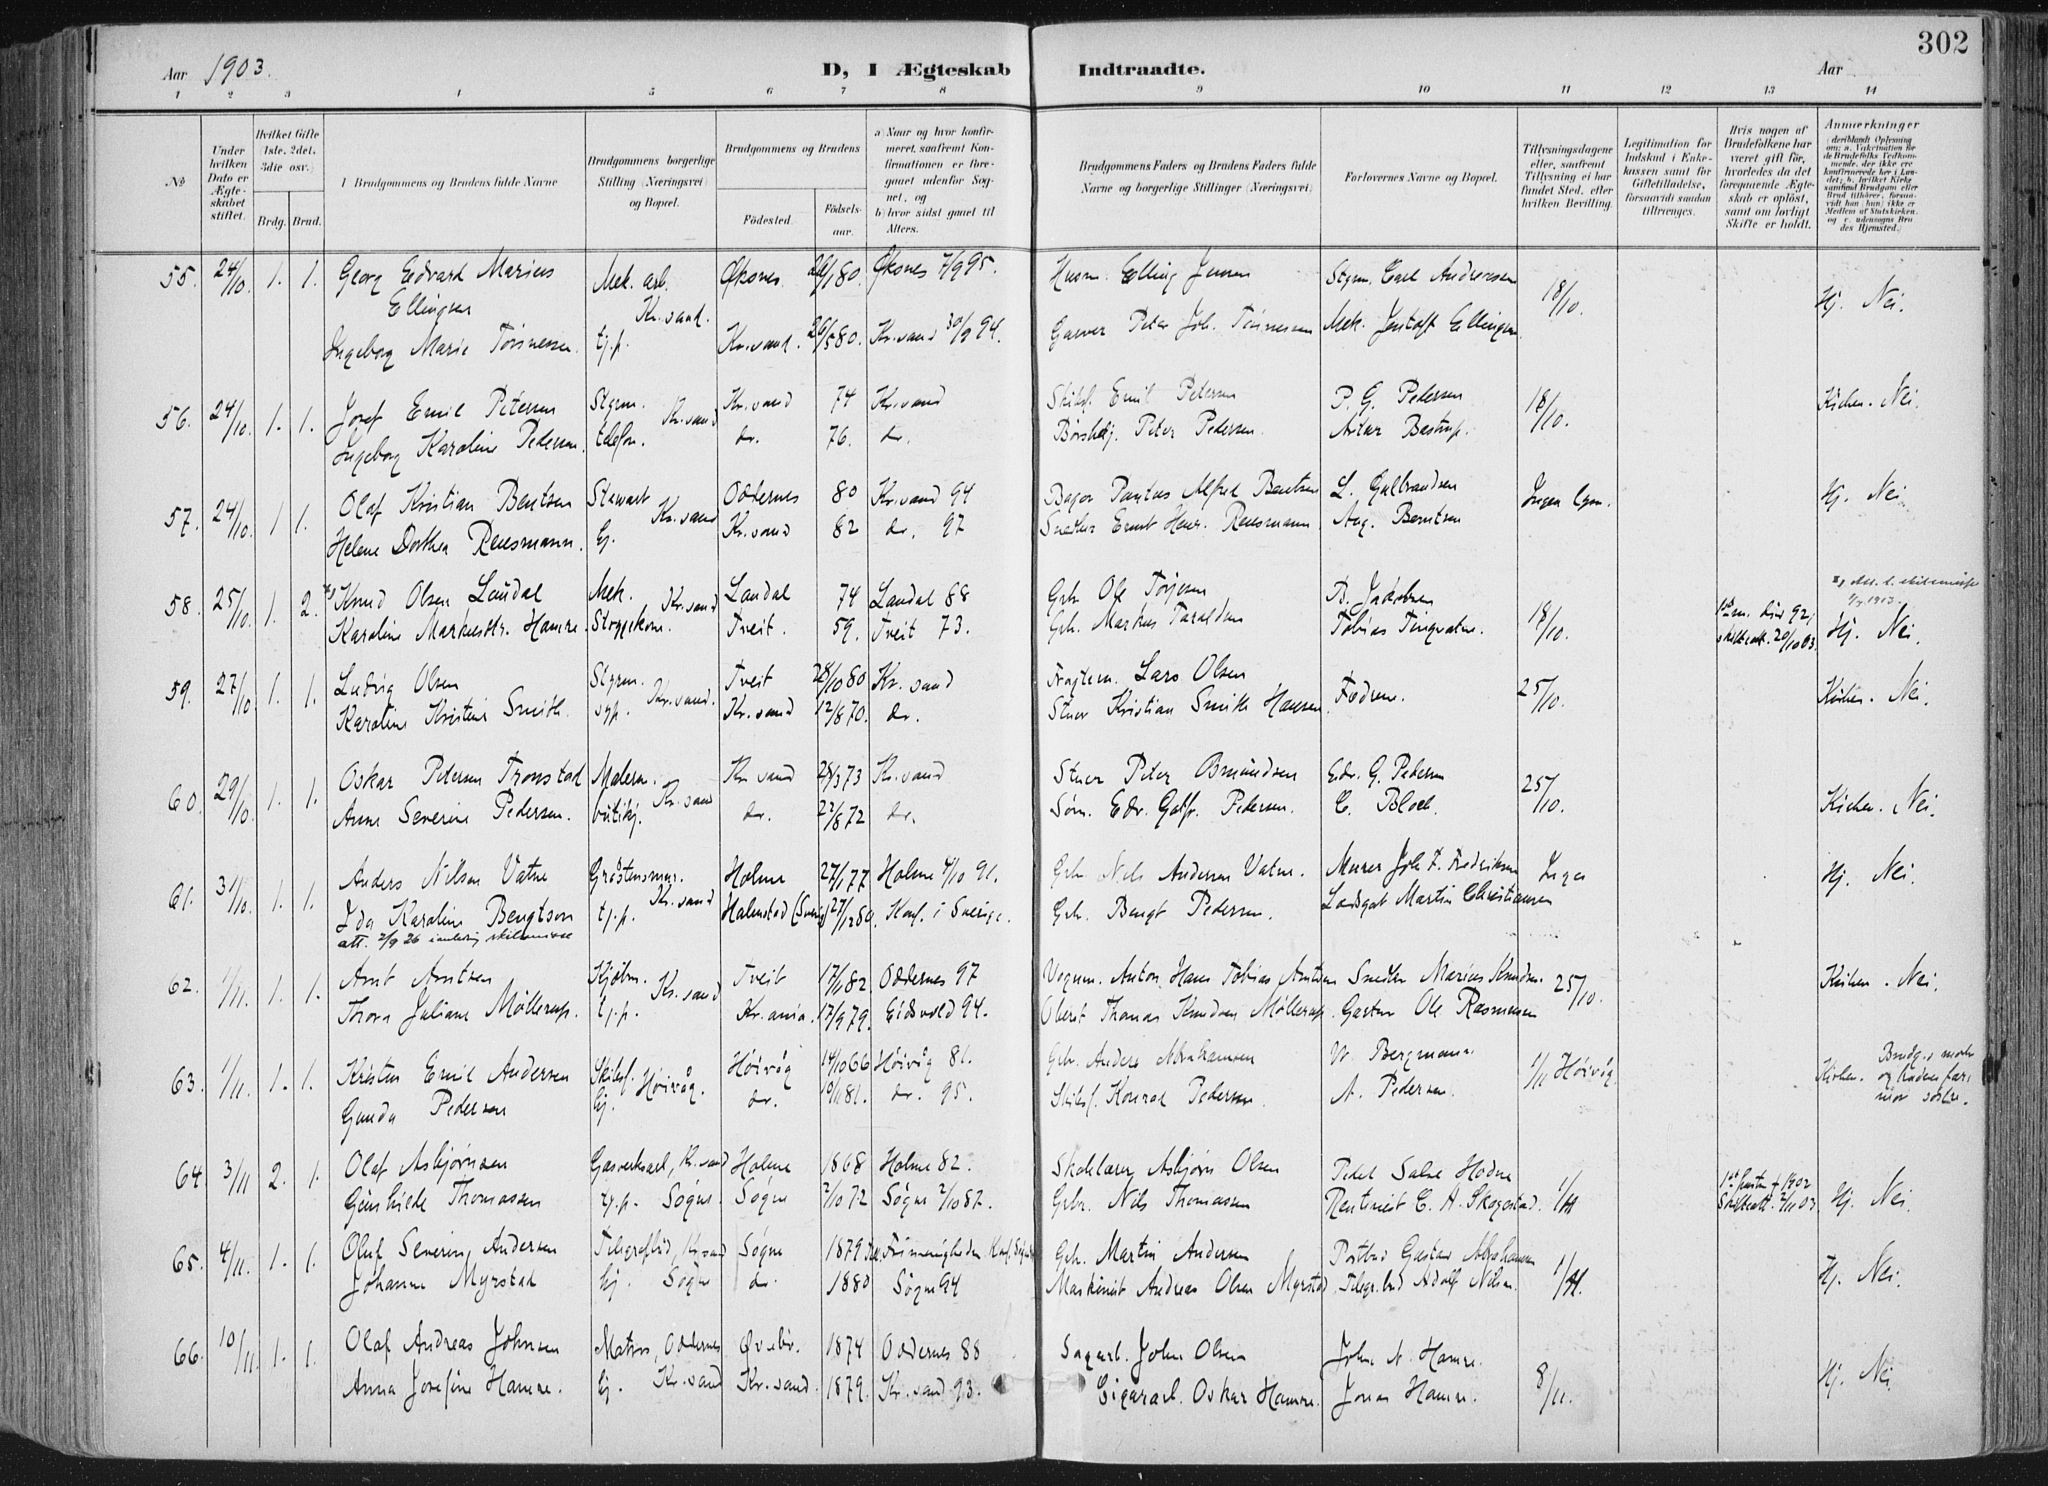 302
Aar 1903.
D, I Ægteskab Indtraadte.
Aar
1 2 3 4 5 6 7 8 9 10 11 12 13 14
No
Under hvilken Dato er Ægteskabet stiftet.
Hvilket Gifte (1ste, 2det, 3die osv.)
Brdg. Brud.
1 Brudgommens og Brudens fulde Navne
Brudgommens borgerlige Stilling (Næringsvei) og Bopæl.
Brudgommens og Brudens
Fødested.
Fødselsaar.
a) Naar og hvor konfirmeret, saafremt Konfirmationen er foregaaet udenfor Sognet, og
b) hvor sidst gaaet til Alters.
Brudgommens Faders og Brudens Faders fulde Navne og borgerlige Stillinger (Næringsvei)
Forlovernes Navne og Bopæl.
Tillysningsdagene eller, saafremt Tillysning ei har fundet Sted, efter hvilken Bevilling.
Legitimation for Indskud i Enkekassen samt for Giftetilladelse, forsaavidt saadan tiltrænges.
Hvis nogen af Brudefolkene har været gift før, hvorledes da det foregaaende Ægteskab er opløst, samt om lovligt Skifte er holdt.
Anmærkninger
55. 24/10. 1. 1. Georg Edvard Marius Ellingsen Mek. arb. Kr.sand. Øksnes 80. Øksnes 7/9 95. Husm. Elling Jensen Styrm. Carl Andreasen 18/10. Hj. Nei.
Ingeborg Marie Tønnesen. tj.p. Kr.sand. 26/5 80. Kr.sand 30/9 94. Garver Peter Joh. Tønnesen Mek. Ellingsen
56. 24/10. 1. 1. Josef Emil Petersen Styrm. Kr.sand Kr.sand 74 Kr.sand Skibsf. Emil Petersen P. G. Pedersen 18/10. Kirken. Nei.
Ingeborg Karoline Pedersen. telefon. do. 76. do. Peter Pedersen. Artur Bastrup.
57. 24/10. 1. 1. Olaf Kristian Bentsen Stewart Kr.sand Oddernes 80 Kr.sand 94 Bager Pontus Alfred Bentsen L. Gulbrandsen Ingen lysn. Hj. Nei.
Helene Dorthea Reusmann. hj. Kr.sand 82 do. 97 Snedker Ernst Henr. Reusmann. Aug. Berntsen
58. 25/10. 1. 2. Knud Olsen Laudal Mek. Kr.sand Laudal 74 Laudal 88 Gbr. Ole Torjesen B. Jakobsen 18/10. Hj. Nei.
Karoline Markusdtr. Hamre. Strygekone. Tveit. 59. Tveit 73. Gbr. Markus Taraldsen Tobias Tingvatne. 1ste m. død 92, skifteatt. 20/10 03.
59. 27/10. 1. 1. Ludvig Olsen Styrm. Kr.sand. Tveit 28/10 80 Kr.sand Fragtem. Lars Olsen Fædrene. 25/10. Kirken. Nei.
Karoline Kristine Smith. syp. Kr.sand 12/8 70. do. Stuer Kristian Smith Hansen
60. 29/10. 1. 1. Oskar Petersen Tronstad Malersv. Kr.sand Kr.sand 28/3 73 Kr.sand Stuer Peter Osmundsen Edv. G. Pedersen 25/10. Kirken. Nei.
Anne Severine Pedersen. butikj. do. 22/8 72 do. Søm. Edv. Gotfr. Pedersen. C. Bloch.
61. 31/10. 1. 1. Anders Nilsen Vatne Grøftensmur. Kr.sand Holme 27/1 77 Holme 4/10 91. Gbr. Nils Andersen Vatne. Murer Joh. F. Fredriksen Ingen Hj. Nei.
Ida Karoline Bengtson tj.p. Halmstad (Sverige) 27/12 80. Konf. i Sverige. Gbr. Bengt Pedersen. Martin Christiansen
att. 2/9 26
62. 1/11. 1. 1. Arnt Arntsen Kjøbm. Kr.sand Tveit 17/1 82 Oddernes 97 Vognm. Anton Hans Tobias Arntsen Snedker Marius Knudsen. 25/10. Kirken. Nei.
Thora Juliane Møllerup. tj.p. Kr.ania. 17/9 79. Eidsvold 94. Oberst Thomas Knudsen Møllerup. Gartner Ole Rasmussen
63. 1/11. 1. 1. Kristen Emil Andersen Skibsf. Høivåg. Høivåg 14/10 66 Høivåg 81. Gbr. Anders Abrahamsen W. Bergmann 1/11 Høivåg. Kirken. Brudg.s moder og brudens farmor søstre.
Gunda Pedersen hj. do. 10/11 81. do. 95. Skibsf. Konrad Pedersen. A. Pedersen.
64. 3/11 2. 1. Olaf Asbjørnsen Gasverksarb., Kr.sand Holme 1868 Holme 82. Skolelærer Asbjørn Olsen Pedel Salve Hodne 1/11 1ste hustru † 1902 Skifteatt. 2/11 03. Hj. Nei.
Gunhilde Thomassen sy.p. Søgne. Søgne 2/10 72 Søgne 2/10 87. Gbr. Nils Thomassen Rentenist C. A. Skogestad.
65. 4/11. 1. 1. Oluf Severin Andersen Telegrafbud, Kr.sand Søgne 1879 Gbr. Martin Andersen Postbud Gustav Abrahamsen 1/11. Hj. Nei.
Johanne Myrstad hj. Søgne do. 1880 Søgne 94 Maskinist Andreas Olsen Myrstad. Telegr.bud Adolf Nilsen.
66. 10/11. 1. 1. Olaf Andreas Johnsen Matros, Oddernes Øvrebø. 1874 Oddernes 88 Sagarb. John Olsen John N. Hamre. 8/11. Hj. Nei.
Anna Josefine Hamre. hj. Kr.sand Kr.sand. 1879. Kr.sand 93. Sigararb. Oskar Hamre. Jonas Hamre.